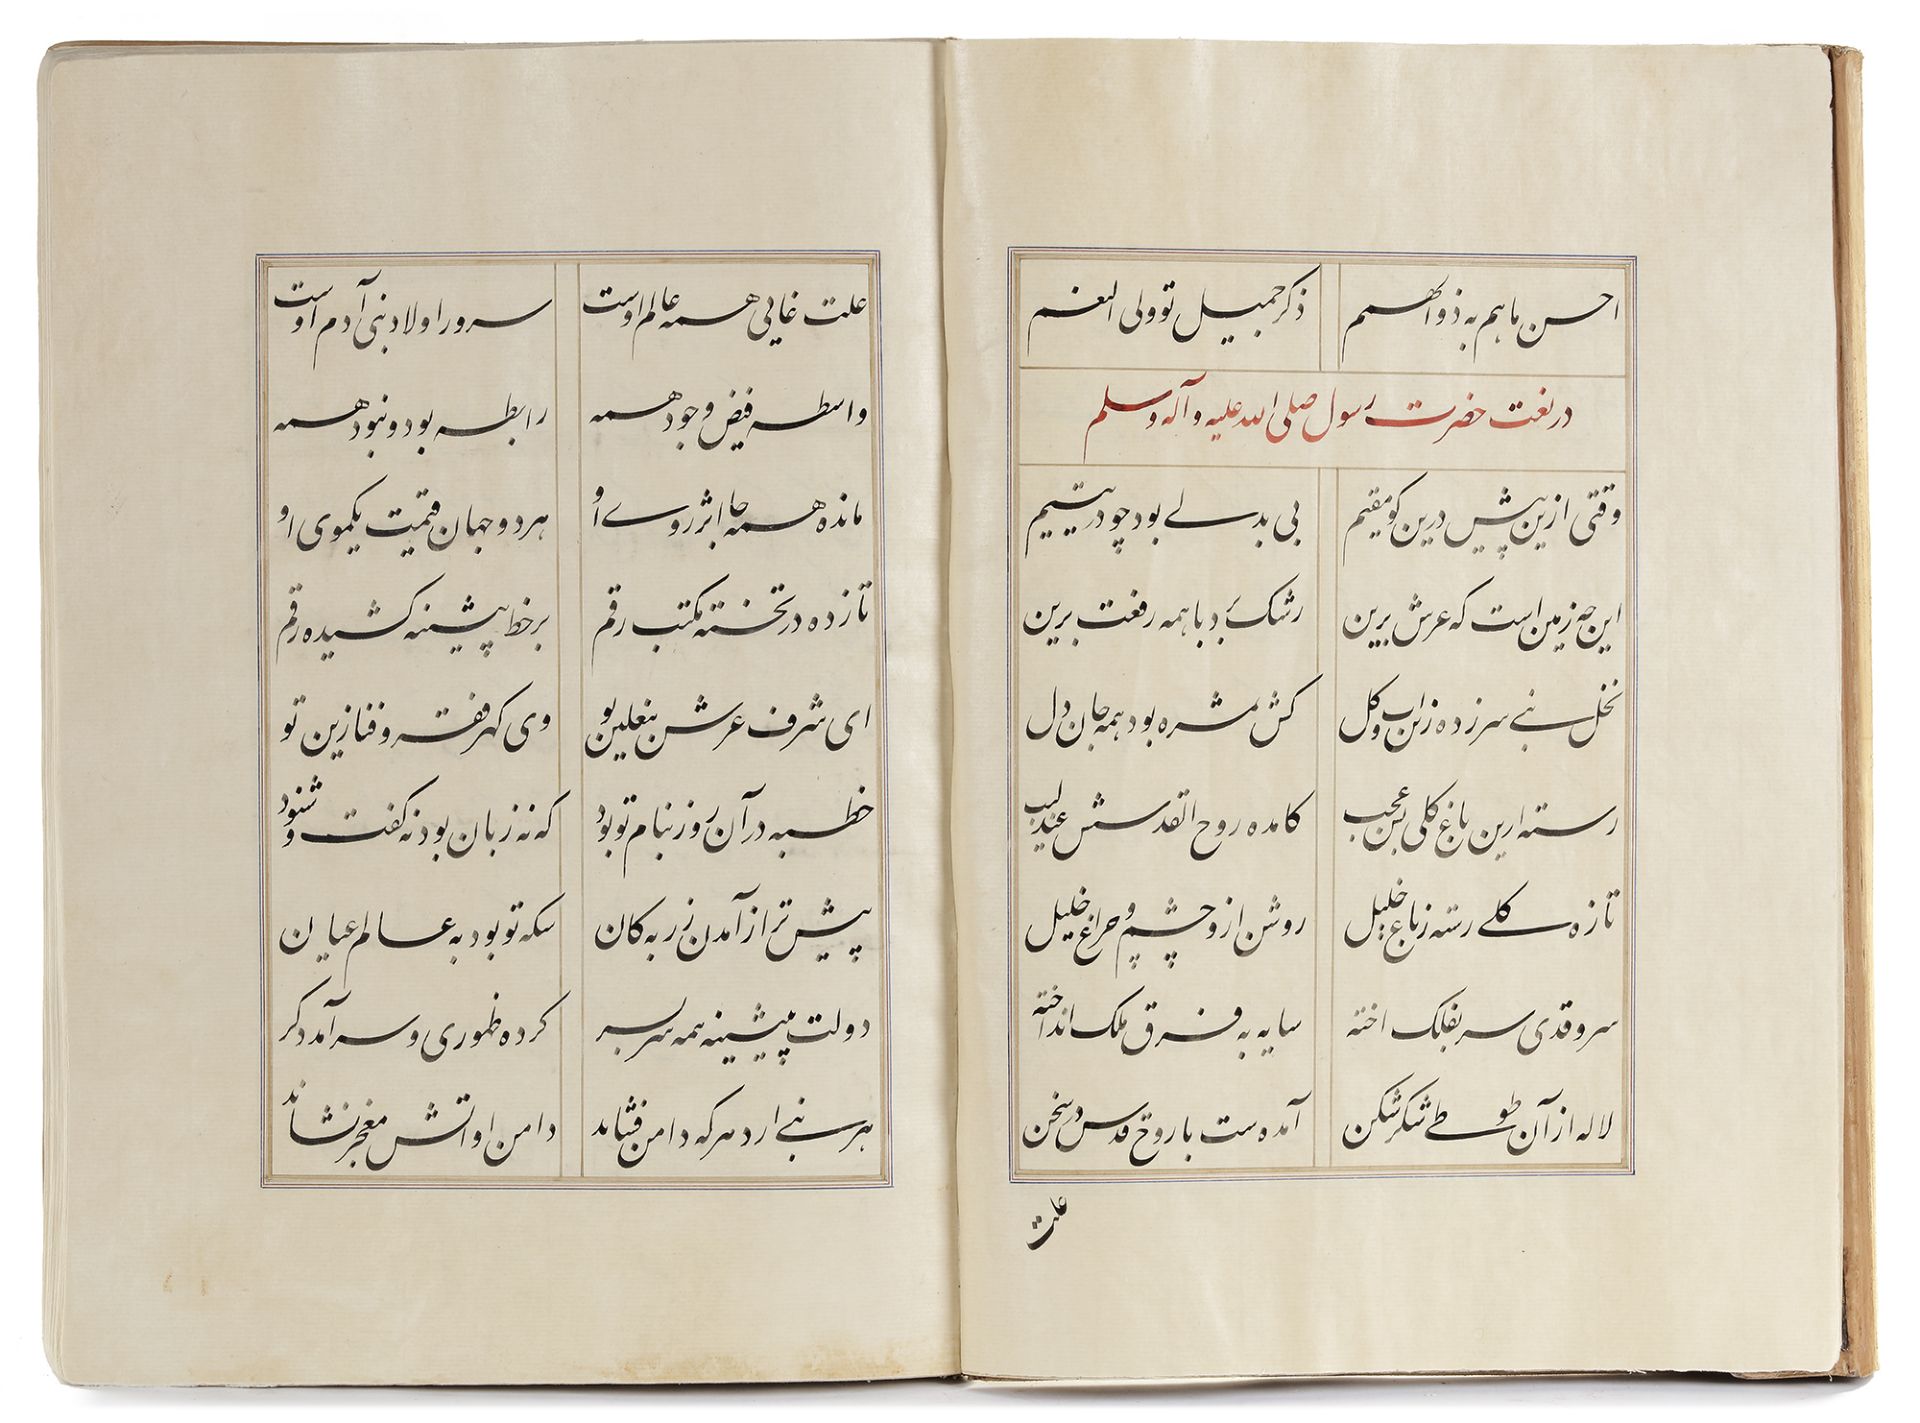 احسن ما هم به ذوالهمم ذکر جمیل تو ولی النعم
در نعت حضرت رسول صلی الله علیه و آله وسلم
وقتی ازین پیش درین کو مقیم بی بدلے بود چو در یتیم
این چه زمین است که عرش برین رشک برد با همه رفعت برین
نخل بنے سرزده زین اب و گل کش ثمره بود همه جان و دل
رسته ازین باغ گلی بس عجب کامده روح القدسش عندلیب
تازه گلے رسته ز باغ خلیل روشن ازو چشم و چراغ خلیل
سرو قدی سر بفلک اخته سایه به فرق ملک انداخته
لاله از آن طوطے شکرشکن آمده ست با روح قدس در سخن
علت
علت غایی همه عالم اوست سرور اولاد بنی آدم اوست
واسطه فیض وجود همه رابطه بود و نبود همه
مانده همه جا اثر روے او هر دو جهان قیمت یکموی او
تا زده در تخته مکتب رقم بر خط پیشینه کشیده رقم
ای شرف عرش بنعلین تو وی گهر فقر و فنا زین تو
خطبه در آن روز بنام تو بود که نه زبان بود نه گفت و شنود
پیش تر از آمدن زر به کان سکه تو بود به عالم عیان
دولت پیشینه همه سربسر کرده ظهوری و سرآمد دگر
هر بنے ارد هر که دامن فشاند دامن او اتش معجز نشاند